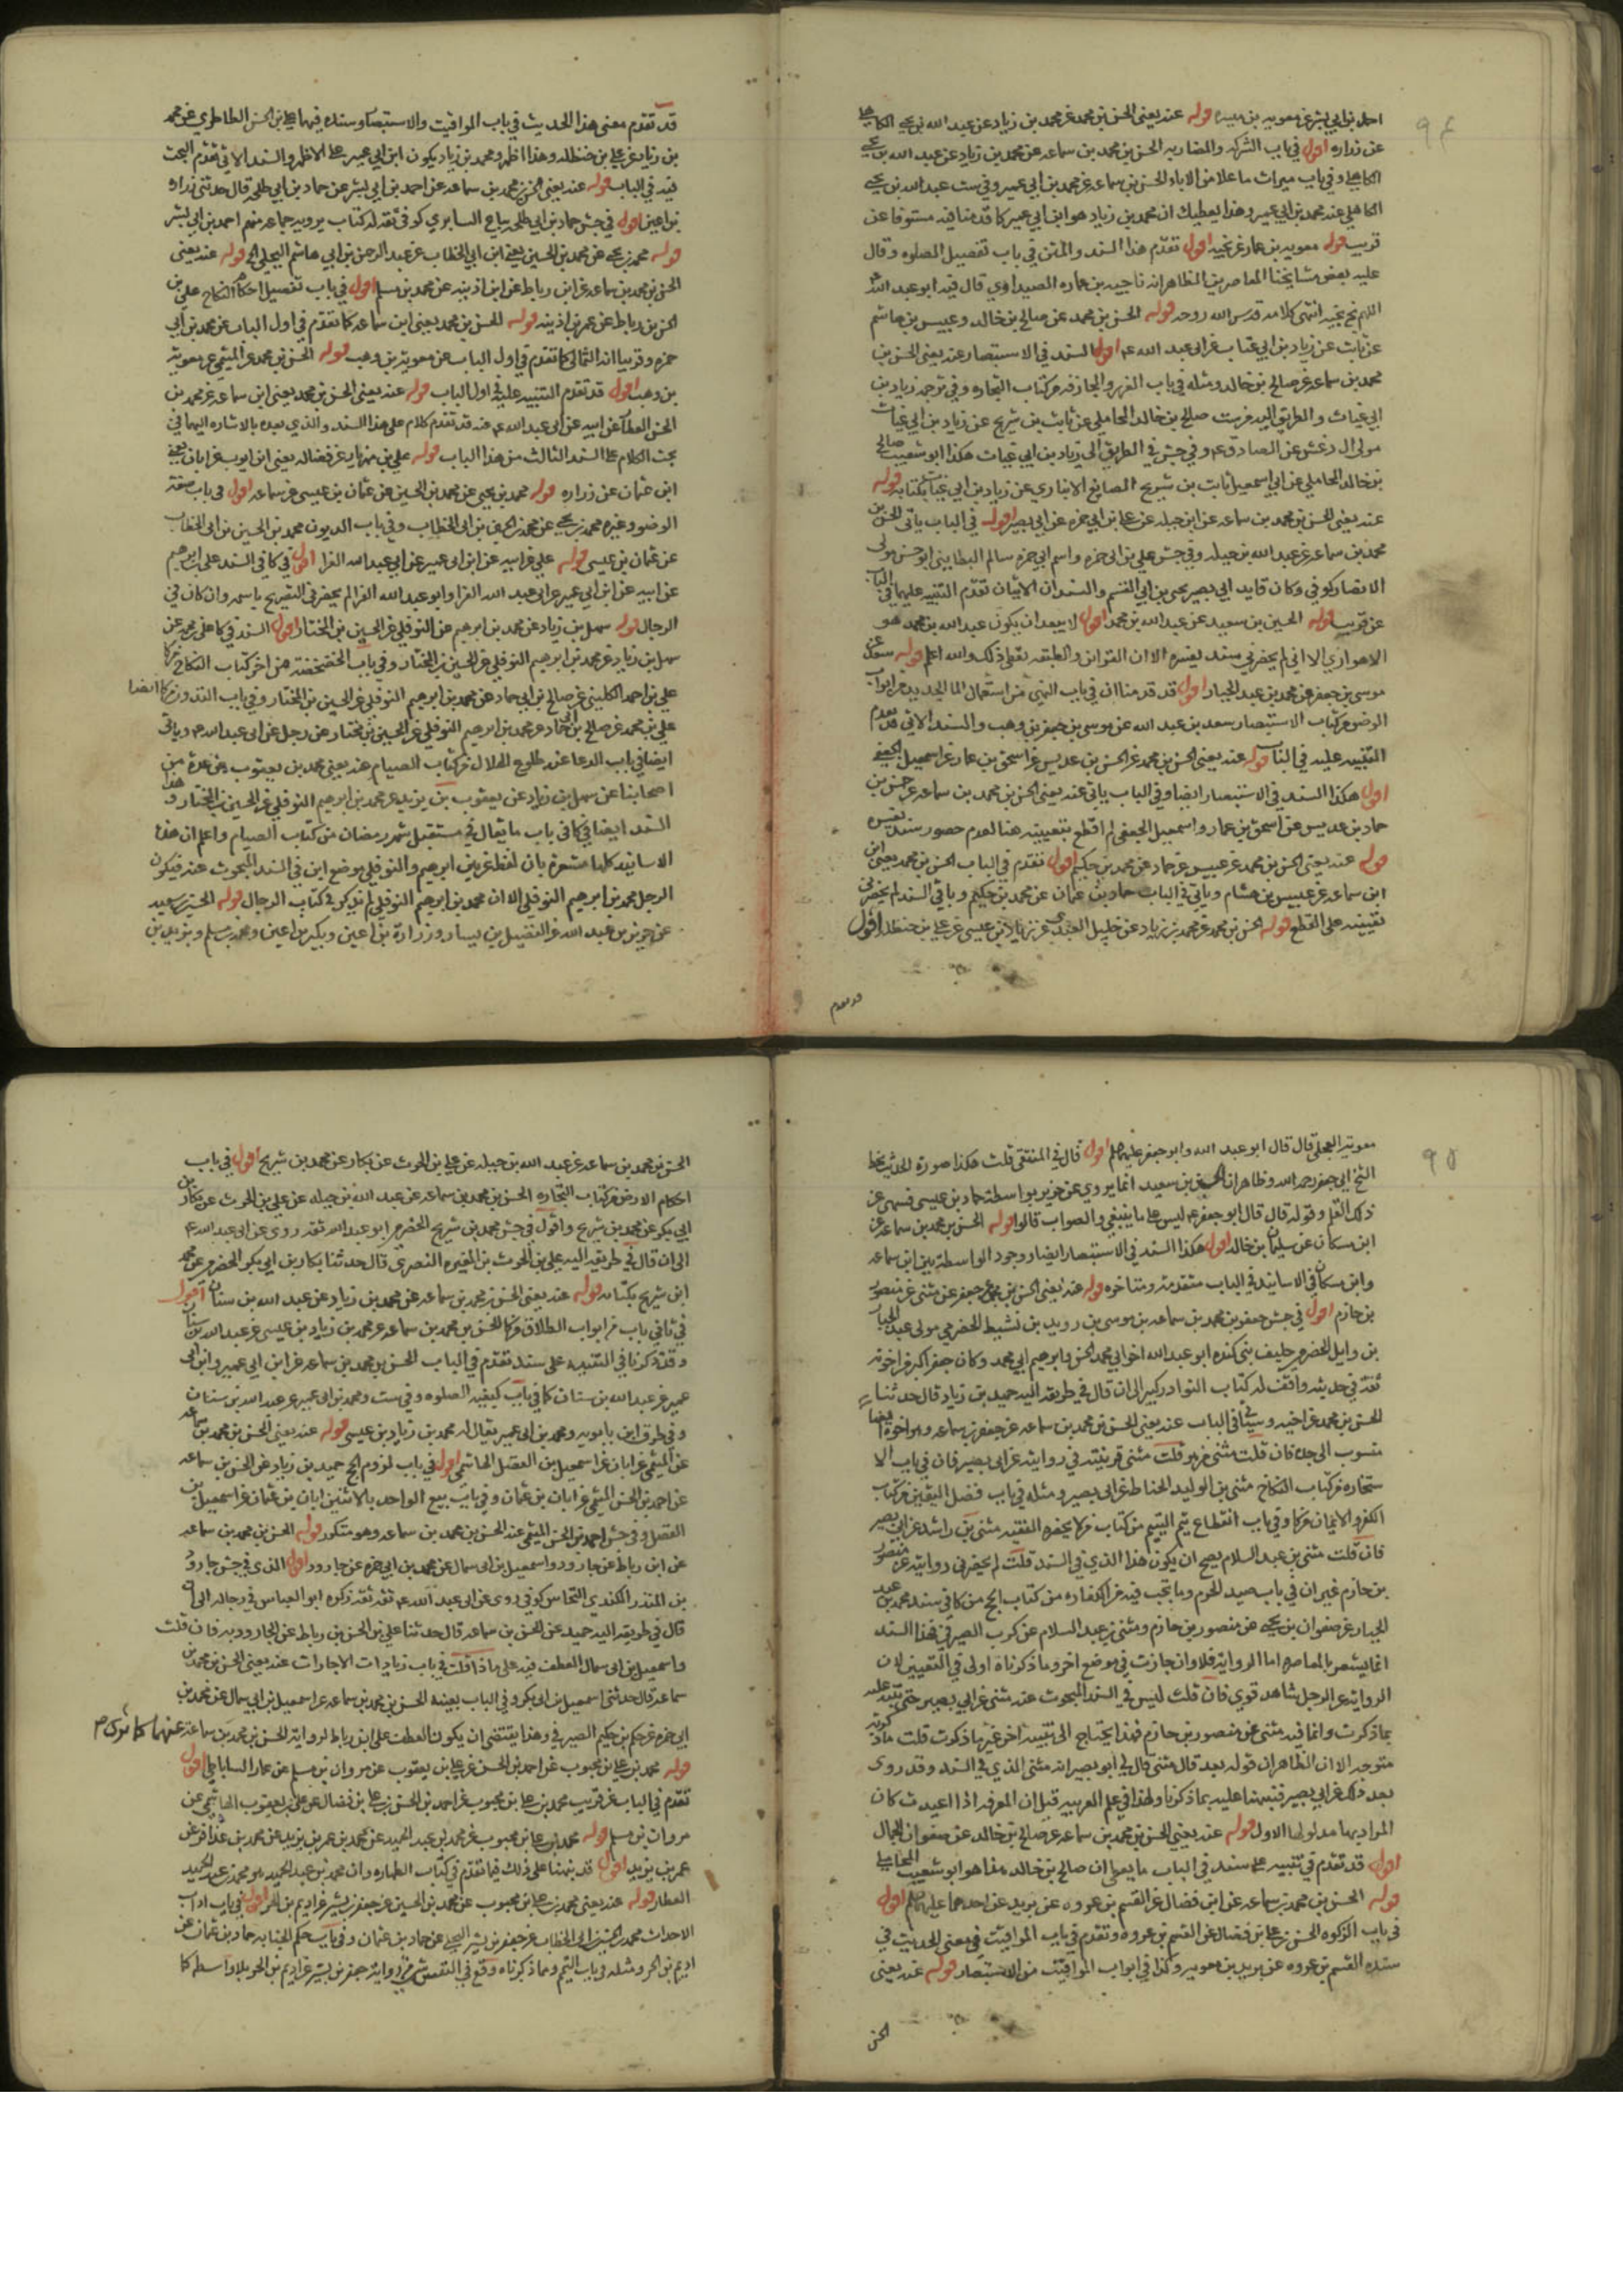 ٩٤
احمد بن ابي بشر عن معويه بن ميسره قوله عنه يعني الحسن بن محمد عن محمد بن زياد عن عبد الله بن يحيى الكاهلي
عن زراره اقول في باب الشركه والمضاربه الحسن بن محمد بن سماعه عن محمد بن زياد عن عبد الله بن يحيى
الكاهلي وفي باب ميراث ما علا من الاباء الحسن بن سماعه عن محمد بن ابي عمير وفي ست عبد الله بن يحيى
الكاهلي عنه محمد بن ابي عمير وهذا يعطيك ان محمد بن زياد هو ابن ابي عمير كما قدمنا فيه مستوفا عن
قريب قوله معويه بن عمار عن نجيه اقول تقدم هذا السند والمتن في باب تفصيل الصلوه وقال
عليه بعض مشايخنا المعاصرين الظاهر انه ناجيه بن عماره الصيداوي قال فيه ابو عبد الله
اللهم نج نجيه انتهى كلامه قدس الله روحه قوله الحسن بن محمد عن صالح بن خالد وعبيس بن هاشم
عن ثابت عن زياد بن ابي غياث عن ابي عبد الله ع اقول السند في الاستبصار عنه يعني الحسن بن
محمد بن سماعه عن صالح بن خالد ومثله في باب الغرر والمجازفه من كتاب التجاره وفي ترجمه زياد بن
ابي غياث والطريق اليه من ست صالح بن خالد المحاملي عن ثابت بن شريح عن زياد بن ابي غياث
مولى ال دغش عن الصادق ع وفي جش في الطريق الى زياد بن ابي غياث هكذا ابو شعيب صالح
بن خالد المحاملي عن ابي اسمعيل ثابت بن شريح الصايغ الانباري عن زياد بن ابي غياث بكتابه قوله
عنه يعني الحسن بن محمد بن سماعه عن ابن جبله عن علي بن ابي حمزه عن ابي بصير اقول في الباب ياتي الحسن بن
محمد بن سماعه عن عبد الله بن جبله وفي جش علي بن ابي حمزه واسم ابي حمزه سالم البطايني ابو الحسن مولى
الانصار كوفي وكان قايد ابي بصير يحيى بن ابي القسم والسندان الاتيان تقدم التنبيه عليهما في الباب
عن قريب قوله الحسين بن سعيد عن عبد الله بن محمد اقول لا يبعد ان يكون عبد الله بن محمد هو
الاهوازي الا اني لم يحضرني سند يفسره الا ان القراين والطبقه يعطي ذلك والله اعلم قوله سعد عن
موسى بن جعفر عن محمد بن عبد الجبار اقول قد قدمنا ان في باب النهي عن استعمال الما الجديد من ابواب
الوضو من كتاب الاستبصار سعد بن عبد الله عن موسى بن جعفر بن وهب والسند الاتي قد تقدم
التنبيه عليه في الباب قوله عنه يعني الحسن بن محمد عن الحسن بن عديس عن اسحق بن عمار عن اسمعيل الجعفي
اقول هكذا السند في الاستبصار ايضا وفي الباب ياتي عنه يعني الحسن بن محمد بن سماعه عن حسن بن
حماد بن عديس عن اسحق بن عمار واسمعيل الجعفي لم اقطع بتعيينه هنا لعدم حضور سند يفسره
قوله عنه يعني الحسن بن محمد عن عبيس عن حماد عن محمد بن حكيم اقول تقدم في الباب الحسن بن محمد يعني ابن
ابن سماعه عن عبيس بن هشام وياتي في الباب حماد بن عثمان عن محمد بن حكيم وباقي السند لم يحضرني
تعيينه على القطع قوله الحسن بن محمد عن محمد بن زياد عن خليل العبدي عن زياد بن عيسى عن علي بن حنظله اقول
قد تقدم
قد تقدم معنى هذا الحديث في باب المواقيت والاستبصار وسنده فيهما علي بن الحسن الطاطري عن محمد
بن زياد عن علي بن حنظله وهذا اظهر ومحمد بن زياد يكون ابن ابي عمير على الاظهر والسند الاتي تقدم البحث
فيه في الباب قوله عنه يعني الحسن بن محمد بن سماعه عن احمد بن ابي بشر عن حماد بن ابي طلحه قال حدثني زراره
بن اعين اقول في جش حماد بن ابي طلحه بياع السابري كوفي ثقه له كتاب يرويه جماعه منهم احمد بن ابي بشر
قوله محمد بن يحيى عن محمد بن الحسين يعني ابن ابي الخطاب عن عبد الرحمن بن ابي هاشم البجلي الخ قوله عنه يعني
الحسن بن محمد بن سماعه عن ابن رباط عن ابن اذينه عن محمد بن مسلم اقول في باب تفصيل احكام النكاح علي بن
الحسن بن رباط عن عمر بن اذينه قوله الحسن بن محمد يعني ابن سماعه كما تقدم في اول الباب عن محمد بن ابي
حمزه وقريبا انه الثمالي كما تقدم في اول الباب عن معويه بن وهب قوله الحسن بن محمد عن الميثمي عن معويه
بن وهب اقول قد تقدم التنبيه عليه في اول الباب قوله عنه يعني الحسن بن محمد يعني ابن سماعه عن محمد بن
الحسن العطار عن ابيه عن ابي عبد الله ع منه قد تقدم كلام على هذا السند والذي بعده بالاشاره اليهما في
بحث الكلام على السند الثالث من هذا الباب قوله علي بن مهزيار عن فضاله يعني ابن ايوب عن ابان يعني
ابن عثمان عن زراره قوله محمد بن يحيى عن محمد بن الحسين عن عثمان بن عيسى عن سماعه اقول في باب صفة
الوضو وغيره محمد بن يحيى عن محمد بن الحسين بن ابي الخطاب وفي باب الديون محمد بن الحسين بن ابي الخطاب
عن عثمان بن عيسى قوله علي عن ابيه عن ابن ابي عمير عن ابي عبد الله الفرا اقول في كا في السند علي بن ابرهيم
عن ابيه عن ابن ابي عمير عن ابي عبد الله الفرا وابو عبد الله الفرا لم يحضرني التصريح باسمه وان كان في
الرجال قوله سهل بن زياد عن محمد بن ابرهيم عن النوفلي عن الحسين بن المختار اقول السند في كا علي بن محمد عن
سهل بن زياد عن محمد بن ابرهيم النوفلي عن الحسين بن المختار وفي باب الخضخضه من اخر كتاب النكاح من كا
علي بن احمد الكليني عن صالح بن ابي حماد عن محمد بن ابرهيم النوفلي عن الحسين بن المختار وفي باب النذور من كا ايضا
علي بن محمد عن صالح بن ابي حماد عن محمد بن ابرهيم النوفلي عن الحسين بن مختار عن رجل عن ابي عبد الله ع وياتي
ايضا في باب الدعا عند طلوع الهلال من كتاب الصيام عنه يعني محمد بن يعقوب عن عدة من
اصحابنا عن سهل بن زياد عن يعقوب بن يزيد عن محمد بن ابرهيم النوفلي عن الحسين بن المختار وهذا
السند ايضا في كا في باب ما يقال في مستقبل شهر رمضان من كتاب الصيام واعلم ان هذه
الاسانيد كلها مشعرة بان لفظة عن بين ابرهيم والنوفلي موضع ابن في السند المبحوث عنه فيكون
الرجل محمد بن ابرهيم النوفلي الا ان محمد بن ابرهيم النوفلي لم يذكر في كتاب الرجال قوله الحسين بن سعيد
عن حريز بن عبد الله عن الفضيل بن يسار وزرارة بن اعين وبكير بن اعين ومحمد بن مسلم وبريد بن
٩٥
معويه العجلي قال قال ابو عبد الله وابو جعفر عليهما السلم اقول قال في المنتقى قلت هكذا صورة الحديث بخط
الشيخ ابي جعفر رحمه الله وظاهر ان الحسين بن سعيد انما يروي عن حريز بواسطة حماد بن عيسى فسهى عن
ذلك القلم وقوله قال قال ابو جعفر ع ليس على ما ينبغي والصواب قالوا قوله الحسن بن محمد بن سماعه عن
ابن مسكان عن سليمان بن خالد اقول هكذا السند في الاستبصار ايضا ووجود الواسطة بين ابن سماعه
وابن مسكان في الاسانيد في الباب متقدمه ومتاخره قوله عنه يعني الحسن بن محمد عن جعفر عن مثنى عن منصور
بن حازم اقول في جش جعفر بن محمد بن سماعه بن موسى بن رويد بن نشيط الحضرمي مولى عبد الجبار
بن وايل الحضرمي حليف بني كنده ابو عبد الله اخو ابي محمد الحسن وابرهيم ابي محمد وكان جعفر اكبر من اخوته
ثقة في حديثه واقف له كتاب النوادر كبير الى ان قال في طريقه اليه حميد بن زياد قال حدثنا
الحسن بن محمد عن اخيه وسياتي في الباب عنه يعني الحسن بن محمد بن سماعه عن جعفر بن سماعه وهو اخوه ايضا
منسوب الى جده فان قلت مثنى من هو قلت مثنى قرينته في روايته عن ابي بصير فان في باب الا
ستخاره من كتاب النكاح مثنى بن الوليد الحناط عن ابي بصير ومثله في باب فضل اليقين من كتاب
الكفر والايمان من كا وفي باب انقطاع يتم اليتيم من كتاب من لا يحضره الفقيه مثنى بن راشد عن ابي بصير
فان قلت مثنى بن عبد السلام يصح ان يكون هذا الذي في السند قلت لم يحضرني روايته عن منصور
بن حازم غير ان في باب صيد الحرم وما يجب فيه من الكفاره من كتاب الحج من كا في سند محمد بن عبد
الجبار عن صفوان بن يحيى عن منصور بن حازم ومثنى بن عبد السلام عن كرب الصيرفي فهذا السند
انما يشعر بالمعاصره اما الروايه فلا وان جازت في موضع اخر وما ذكرناه اولى في التعيين لان
الروايه عن الرجل شاهد قوي فان قلت ليس في السند المبحوث عنه مثنى عن ابي بصير حتى تنبه عليه
بما ذكرت وانما فيه مثنى عن منصور بن حازم فهذا يحتاج الى تنبيه اخر غير ما ذكرت قلت ما ذكرته
متوجه الا ان الظاهر ان قوله بعد قال مثنى قال لي ابو بصير انه مثنى الذي في السند وقد روى
بعد ذلك عن ابي بصير فنبهنا عليه بما ذكرنا ولهذا في علم العربيه قيل ان المعرفه اذا اعيدت كان
المراد بها مدلولها الاول قوله عنه يعني الحسن بن محمد بن سماعه عن صالح بن خالد عن صفوان الجمال
اقول قد تقدم في تنبيه على سند في الباب ما يعطي ان صالح بن خالد هنا هو ابو شعيب المحاملي
قوله الحسن بن محمد بن سماعه عن ابن فضال عن القسم بن عروه عن بريد عن احدهما عليهما السلم اقول
في باب الزكوه الحسن بن علي بن فضال عن القسم بن عروه وتقدم في باب المواقيت في معنى الحديث في
سنده القسم بن عروه عن بريد بن معويه وكذا في ابواب المواقيت من الاستبصار قوله عنه يعني
الحسن
الحسن بن محمد بن سماعه عن عبد الله بن جبله عن علي بن الحرث عن بكار عن محمد بن شريح اقول في باب
احكام الارضين من كتاب التجاره الحسن بن محمد بن سماعه عن عبد الله بن جبله عن علي بن الحرث عن بكار بن
ابي بكر عن محمد بن شريح واقول في جش محمد بن شريح الحضرمي ابو عبد الله ثقه روى عن ابي عبد الله ع
الى ان قال في طريقه اليه علي بن الحرث بن المغيره النصري قال حدثنا بكار بن ابي بكر الحضرمي عن محمد
ابن شريح بكتابه قوله عنه يعني الحسن بن محمد بن سماعه عن محمد بن زياد عن عبد الله بن سنان اقول
في ثاني باب من ابواب الطلاق من كا الحسن بن محمد بن سماعه عن محمد بن زياد بن عيسى عن عبد الله بن سنان
وقد ذكرنا في التنبيه على سند تقدم في الباب الحسن بن محمد بن سماعه عن ابن ابي عمير وابن ابي
عمير عن عبد الله بن سنان كما في باب كيفيه الصلوه وفي ست ومحمد بن ابي عمير عن عبد الله بن سنان
وفي طرق ابن بابويه ومحمد بن ابي عمير يقال له محمد بن زياد بن عيسى قوله عنه يعني الحسن بن محمد بن سماعه
عن الميثمي عن ابان عن اسمعيل بن الفضل الهاشمي اقول في باب لزوم الحج حميد بن زياد عن الحسن بن سماعه
عن احمد بن الحسن الميثمي عن ابان بن عثمان وفي باب بيع الواحد بالاثنين ابان بن عثمان عن اسمعيل بن
الفضل وفي جش احمد بن الحسن الميثمي عنه الحسن بن محمد بن سماعه وهو متكرر قوله الحسن بن محمد بن سماعه
عن ابن رباط عن جارود واسمعيل بن ابي سمال عن محمد بن ابي حمزه عن جارود اقول الذي في جش جارود
بن المنذر الكندي النخاس كوفي روى عن ابي عبد الله ع ثقه ثقه ذكره ابو العباس في رجاله الى ان
قال في طريقه اليه حميد عن الحسن بن سماعه قال حدثنا علي بن الحسن بن رباط عن الجارود به فان قلت
واسمعيل بن ابي سمال العطف فيه على ماذا قلت في باب زيادات الاجارات عنه يعني الحسن بن محمد بن
سماعه قال حدثني اسمعيل بن ابي بكر وفي الباب بعينه الحسن بن محمد بن سماعه عن اسمعيل بن ابي سمال عن محمد بن
ابي حمزه عن حكم بن حكيم الصيرفي وهذا يقتضي ان يكون العطف على ابن رباط لروايه الحسن بن محمد بن سماعه عنهما كما ترى م
قوله محمد بن علي بن محبوب عن احمد بن الحسن عن علي بن يعقوب عن مروان بن مسلم عن عمار الساباطي اقول
تقدم في الباب عن قريب محمد بن علي بن محبوب عن احمد بن الحسن بن علي بن فضال عن علي بن يعقوب الهاشمي عن
مروان بن مسلم قوله محمد بن علي بن محبوب عن محمد بن عبد الحميد عن محمد بن عمر بن يزيد عن محمد بن عذافر عن
عمر بن يزيد اقول قد نبهنا على ذلك فيما تقدم في كتاب الطهاره وان محمد بن عبد الحميد هو محمد بن عبد الحميد
العطار قوله عنه يعني محمد بن علي بن محبوب عن محمد بن الحسين عن جعفر بن بشير عن اديم بن الحر اقول في باب اداب
الاحداث محمد بن الحسين بن ابي الخطاب عن جعفر بن بشير البجلي عن حماد بن عثمان وفي باب حكم الجنابه حماد بن عثمان عن
اديم بن الحر ومثله في باب التيمم وما ذكرناه وقع في النفس شي من روايه جعفر بن بشير عن اديم بن الحر بلا واسطه كما